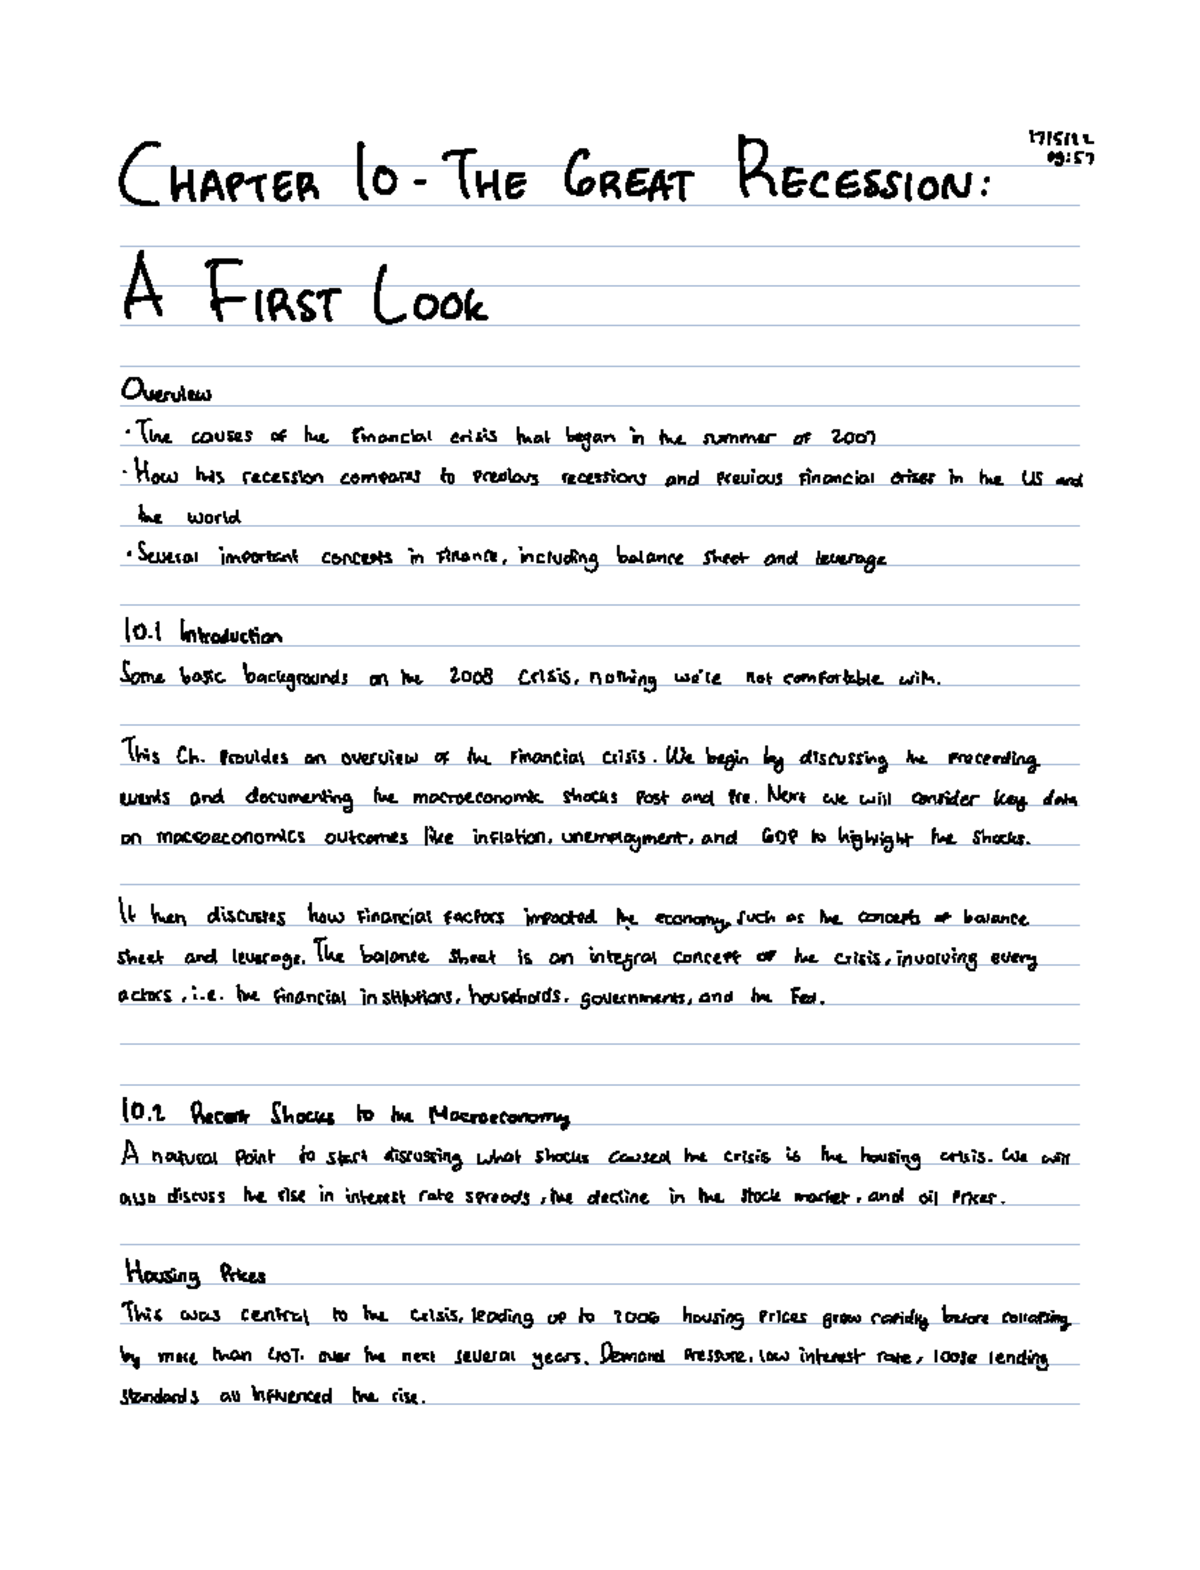 17/5/22
09:57
CHAPTER 10 - THE GREAT RECESSION:
A FIRST LOOK
Overview
· The causes of the financial crisis that began in the summer of 2007
· How this recession compares to previous recessions and previous financial crises in the US and
the world
· Several important concepts in finance, including balance sheet and leverage
10.1 Introduction
Some basic backgrounds on the 2008 crisis, nothing we're not comfortable with.
This Ch. provides an overview of the financial crisis. We begin by discussing the preceeding
events and documenting the macroeconomic shocks post and pre. Next we will consider key data
on macroeconomics outcomes like inflation, unemployment, and GDP to highlight the shocks.
It then discusses how financial factors impacted the economy, such as the concepts of balance
sheet and leverage. The balance sheet is an integral concept of the crisis, involving every
actors, i.e. the financial institutions, households, governments, and the Fed.
10.2 Recent Shocks to the Macroeconomy
A natural point to start discussing what shocks caused the crisis is the housing crisis. We will
also discuss the rise in interest rate spreads, the decline in the stock market, and oil prices.
Housing Prices
This was central to the crisis, leading up to 2006 housing prices grow rapidly before collapsing
by more than over the next several years. Demand pressure, low interest rate, loose lending
standards all influenced the rise.